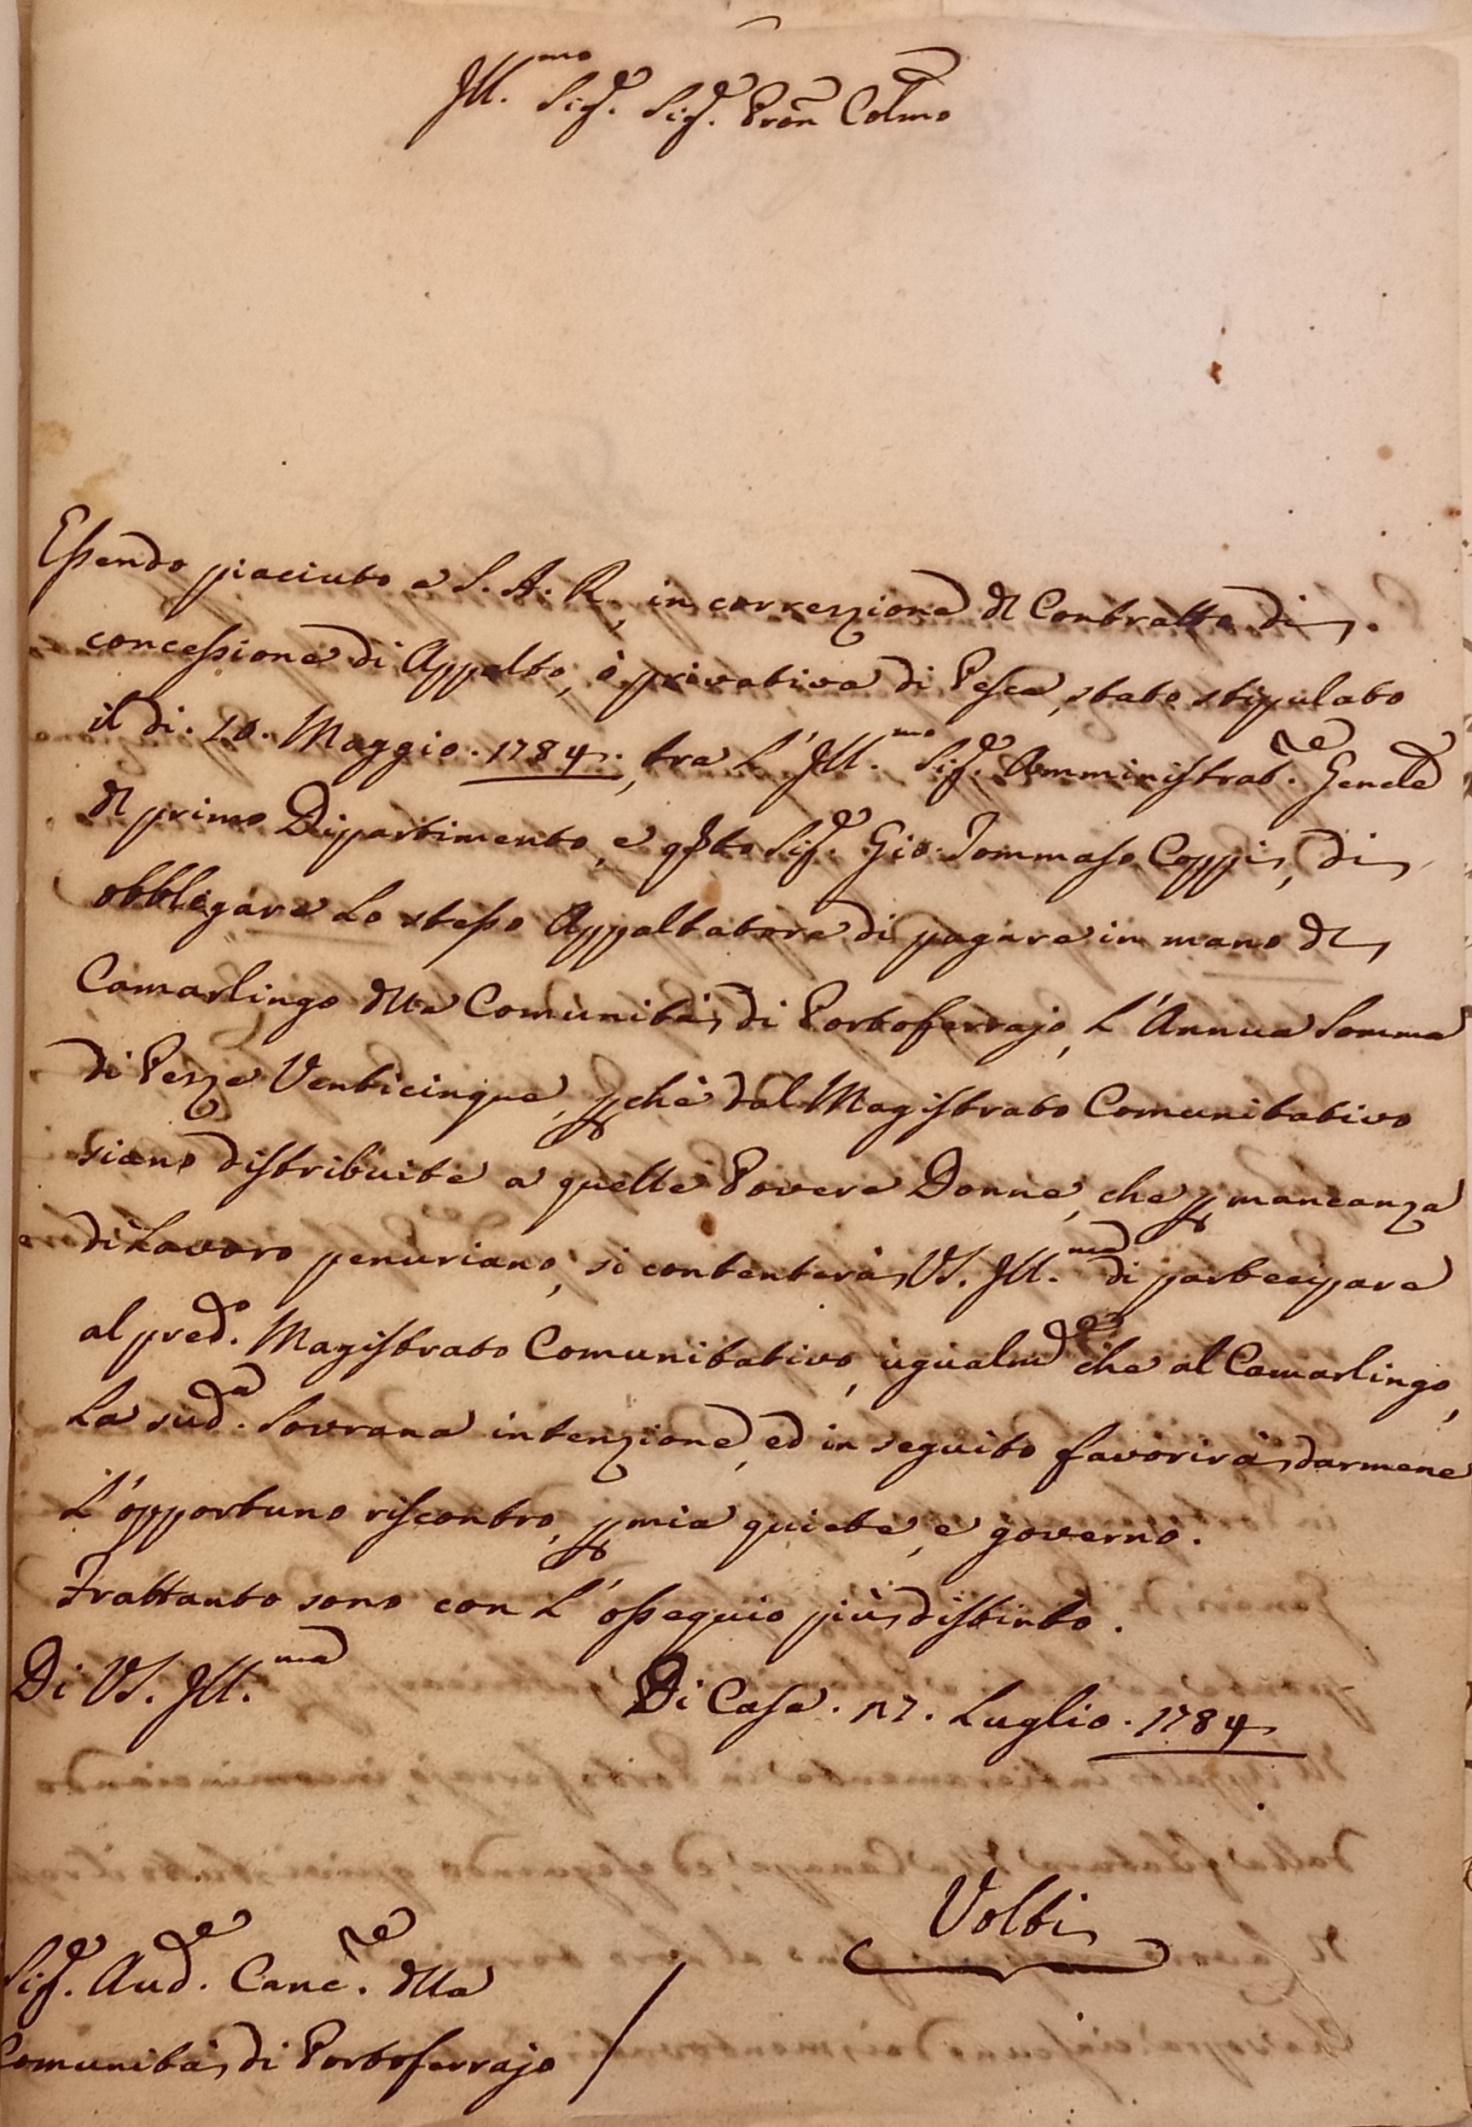 Ill.mo Sig.e Sig.e Pron Colmo
Essendo piaciuto a S. A. R., in correzione dl Contratto di
concessione di Appalto, ò privativa di Pesca, stato stipulato
il di. 10. Maggio. 1784., tra L'Ill.mo Sig.e Amministrat.re Genele
dl primo Dipartimento, e qsto Sig.e Gio. Tommaso Coppi, di
obbligare Lo stesso Appaltatore di pagare in mano dl
Camarlingo dlla Comunità di Portoferrajo, L'Annua Somma
di Pezze Venticinque, pchè dal Magistrato Comunitativo
siano distribuite a quelle Povere Donne, che p mancanza
di Lavoro penuriano, si contenterà VS. Ill.ma di partecipare
al pred.o Magistrato Comunitativo, ugualmte che al Camarlingo,
La sud.a Sovrana intenzione, ed in seguito favorirà darmene
L'opportuno riscontro, p mia quiete, e governo.
Frattanto sono con L'ossequio più distinto.
Di VS. Ill.ma
Di Casa. 17. Luglio. 1784
Volti
Sig.e Aud.e Canc.re dlla
Comunità di Portoferrajo